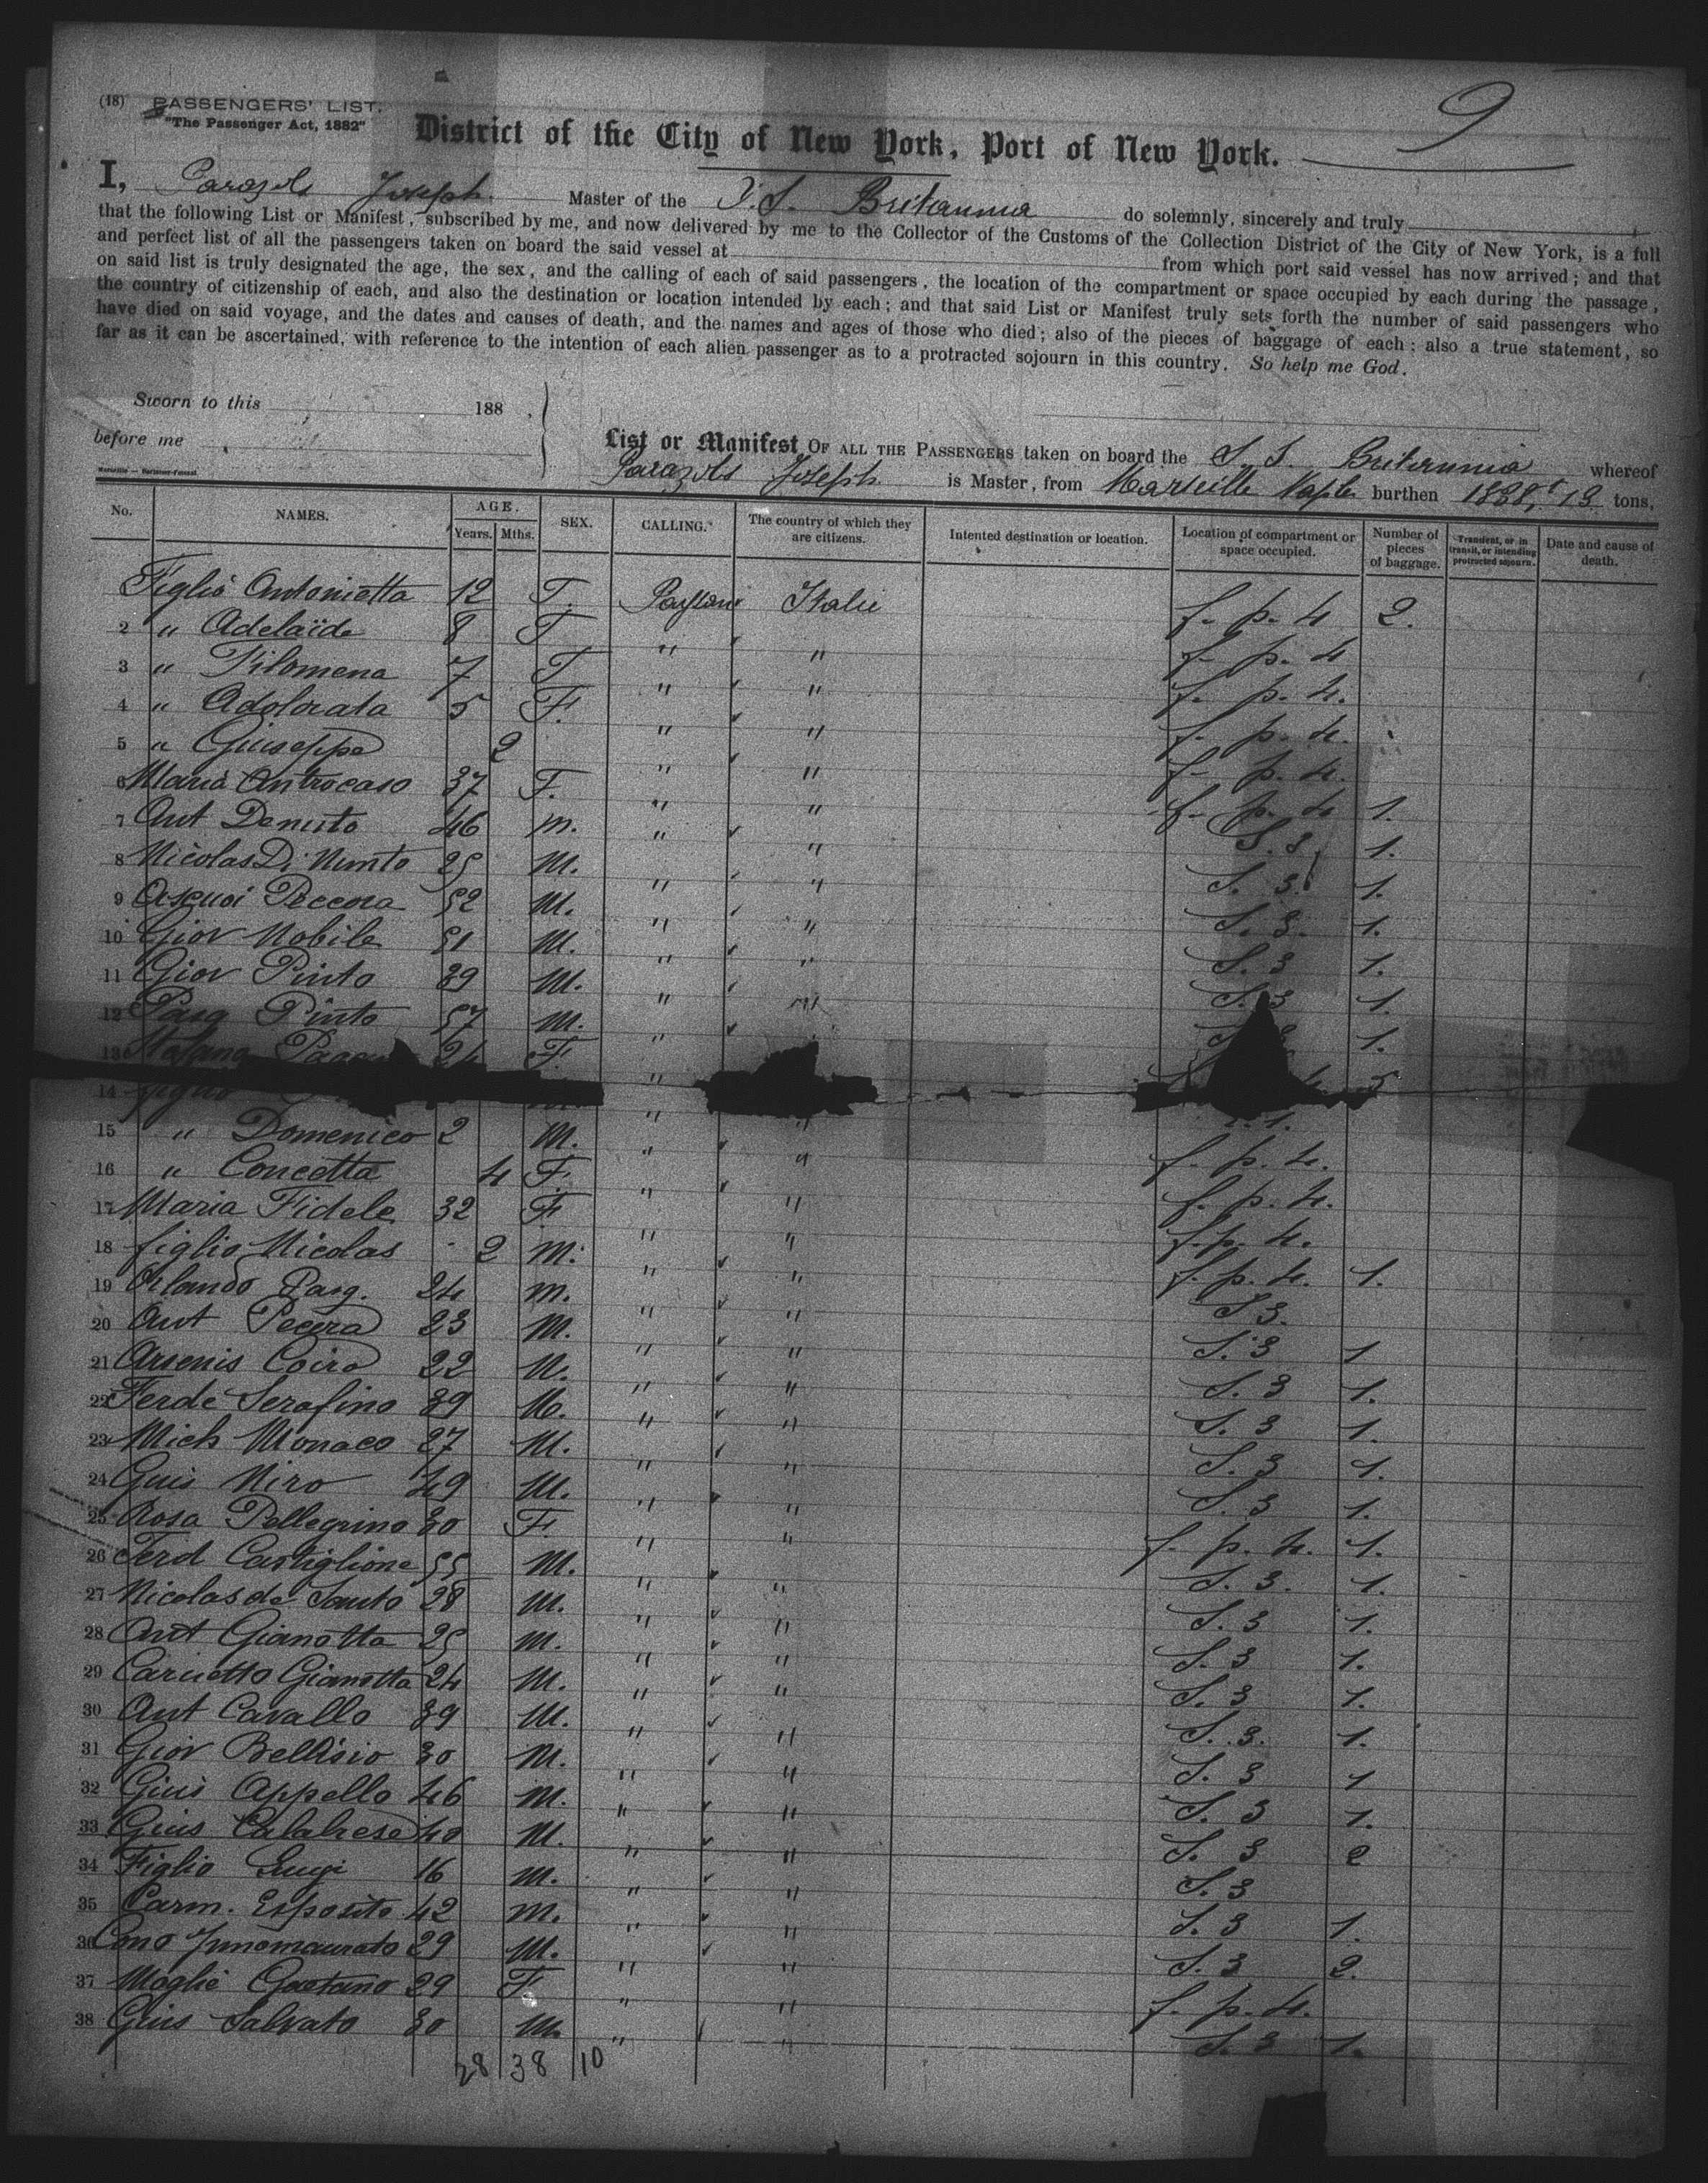 (18) PASSENGERS' LIST. 9
"The Passenger Act, 1882"
District of the City of New York, Port of New York.
I, Joseph Master of the S. Britannia do solemnly, sincerely and truly
that the following List or Manifest, subscribed by me, and now delivered by me to the Collector of the Customs of the Collection District of the City of New York, is a full
and perfect list of all the passengers taken on board the said vessel at from which port said vessel has now arrived; and that
on said list is truly designated the age, the sex, and the calling of each of said passengers, the location of the compartment or space occupied by each during the passage,
the country of citizenship of each, and also the destination or location intended by each; and that said List or Manifest truly sets forth the number of said passengers who
have died on said voyage, and the dates and causes of death, and the names and ages of those who died; also of the pieces of baggage of each; also a true statement, so
far as it can be ascertained, with reference to the intention of each alien passenger as to a protracted sojourn in this country. So help me God.
Sworn to this 188 ,
before me
List or Manifest OF ALL THE PASSENGERS taken on board the S. S. Britannia whereof
Joseph is Master, from Marseille Naples burthen tons,
No. NAMES. AGE. Years. Mths. SEX. CALLING. The country of which they are citizens. Intented destination or location. Location of compartment or space occupied. Number of pieces of baggage. Transient, or in transit, or intending protracted sojourn. Date and cause of death.
Figlio Antonietta 12 F. Italie f. p. 4 2.
2 " Adelaïde 8 F " " f. p. 4
3 " Filomena 7 F " " f. p. 4.
4 " Adolorata 5 F. " " f. p. 4.
5 " Giuseppe 2 " " f. p. 4.
6 Maria Antrocaso 37 F. " " f. p. 4 1.
7 Ant 46 m. " " S. 3 1.
8 Nicolas Di 25 M. " " S. 3. 1.
9 Pecora 52 M. " " S. 3. 1.
10 Giov Nobile 51 M. " " S. 3 1.
11 Giov Pinto 39 M. " " S. 3 1.
12 Pasq Pinto 57 M. " 1.
13 24 F. "
14 figlio
15 " Domenico 2 M. " " f. p. 4.
16 " Concetta 4 F. " " f. p. 4.
17 Maria Fidele 32 F " " f. p. 4.
18 figlio Nicolas 2 M. " " f. p. 4. 1.
19 Orlando Pasq. 24 m. " " S 3.
20 Ant 23 M. " " S. 3 1
21 Arsenis Coiro 22 M. " " S. 3 1.
22 Ferde Serafino 39 M. " " S. 3 1.
23 Mich Monaco 27 M. " " S. 3 1.
24 Guis Niro 49 M. " " S. 3 1.
25 Rosa Pellegrino 30 F. " " f. p. 4. 1.
26 Ferd Castiglione 55 M. " " S. 3. 1.
27 Nicolas de Santo 28 M. " " S. 3 1.
28 Ant Gianotta 25 M. " " S. 3 1.
29 Gianotta 24 M. " " S. 3 1.
30 Ant Cavallo 39 M. " " S. 3. 1.
31 Giov Bellisio 30 M. " " S. 3 1
32 Gius Appello 46 M. " " S. 3 1.
33 Gius Calabrese 40 M. " " S. 3 2
34 Figlio Luigi 16 M. " " S. 3
35 Carm. Esposito 42 M. " " S. 3 1.
36 Cono 29 M. " " S. 3 2.
37 Moglie Gaetano 29 F. " " f. p. 4.
38 Gius Salvato 30 M. " " S. 3 1.
28 38 10